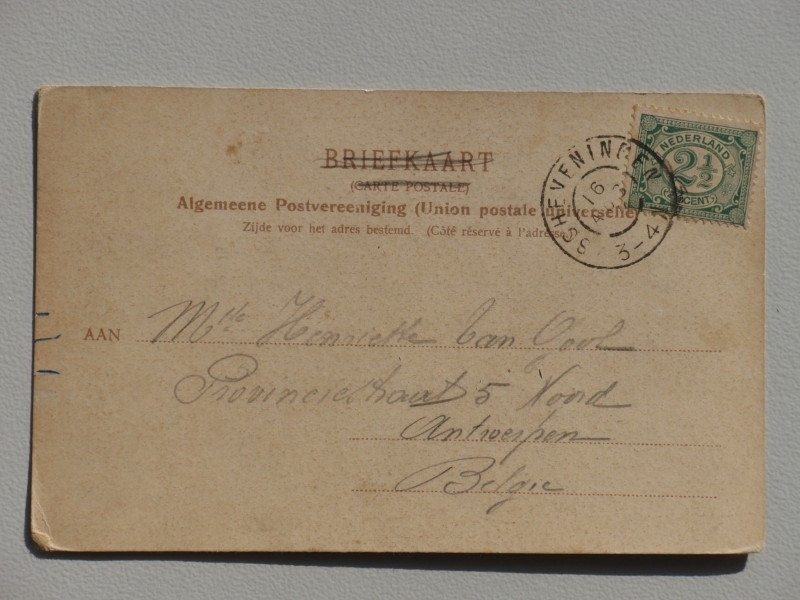 BRIEFKAART
(CARTE POSTALE)
Algemeene Postvereeniging (Union postale universelle)
Zijde voor het adres bestemd. (Côté réservé à l'adresse.)
NEDERLAND
2½
CENT
SCHEVENINGEN
16
3-4
AAN Mlle Henriette Van Gool
Provinciestraat 5 Noord
Antwerpen
Belgie